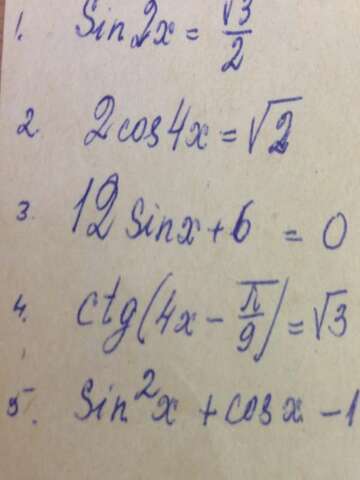 1. Sin2x = √3/2
2. 2cos4x = √2
3. 12 sinx + 6 = 0
4. ctg(4x - π/9) = √3
5. Sin²x + cosx - 1